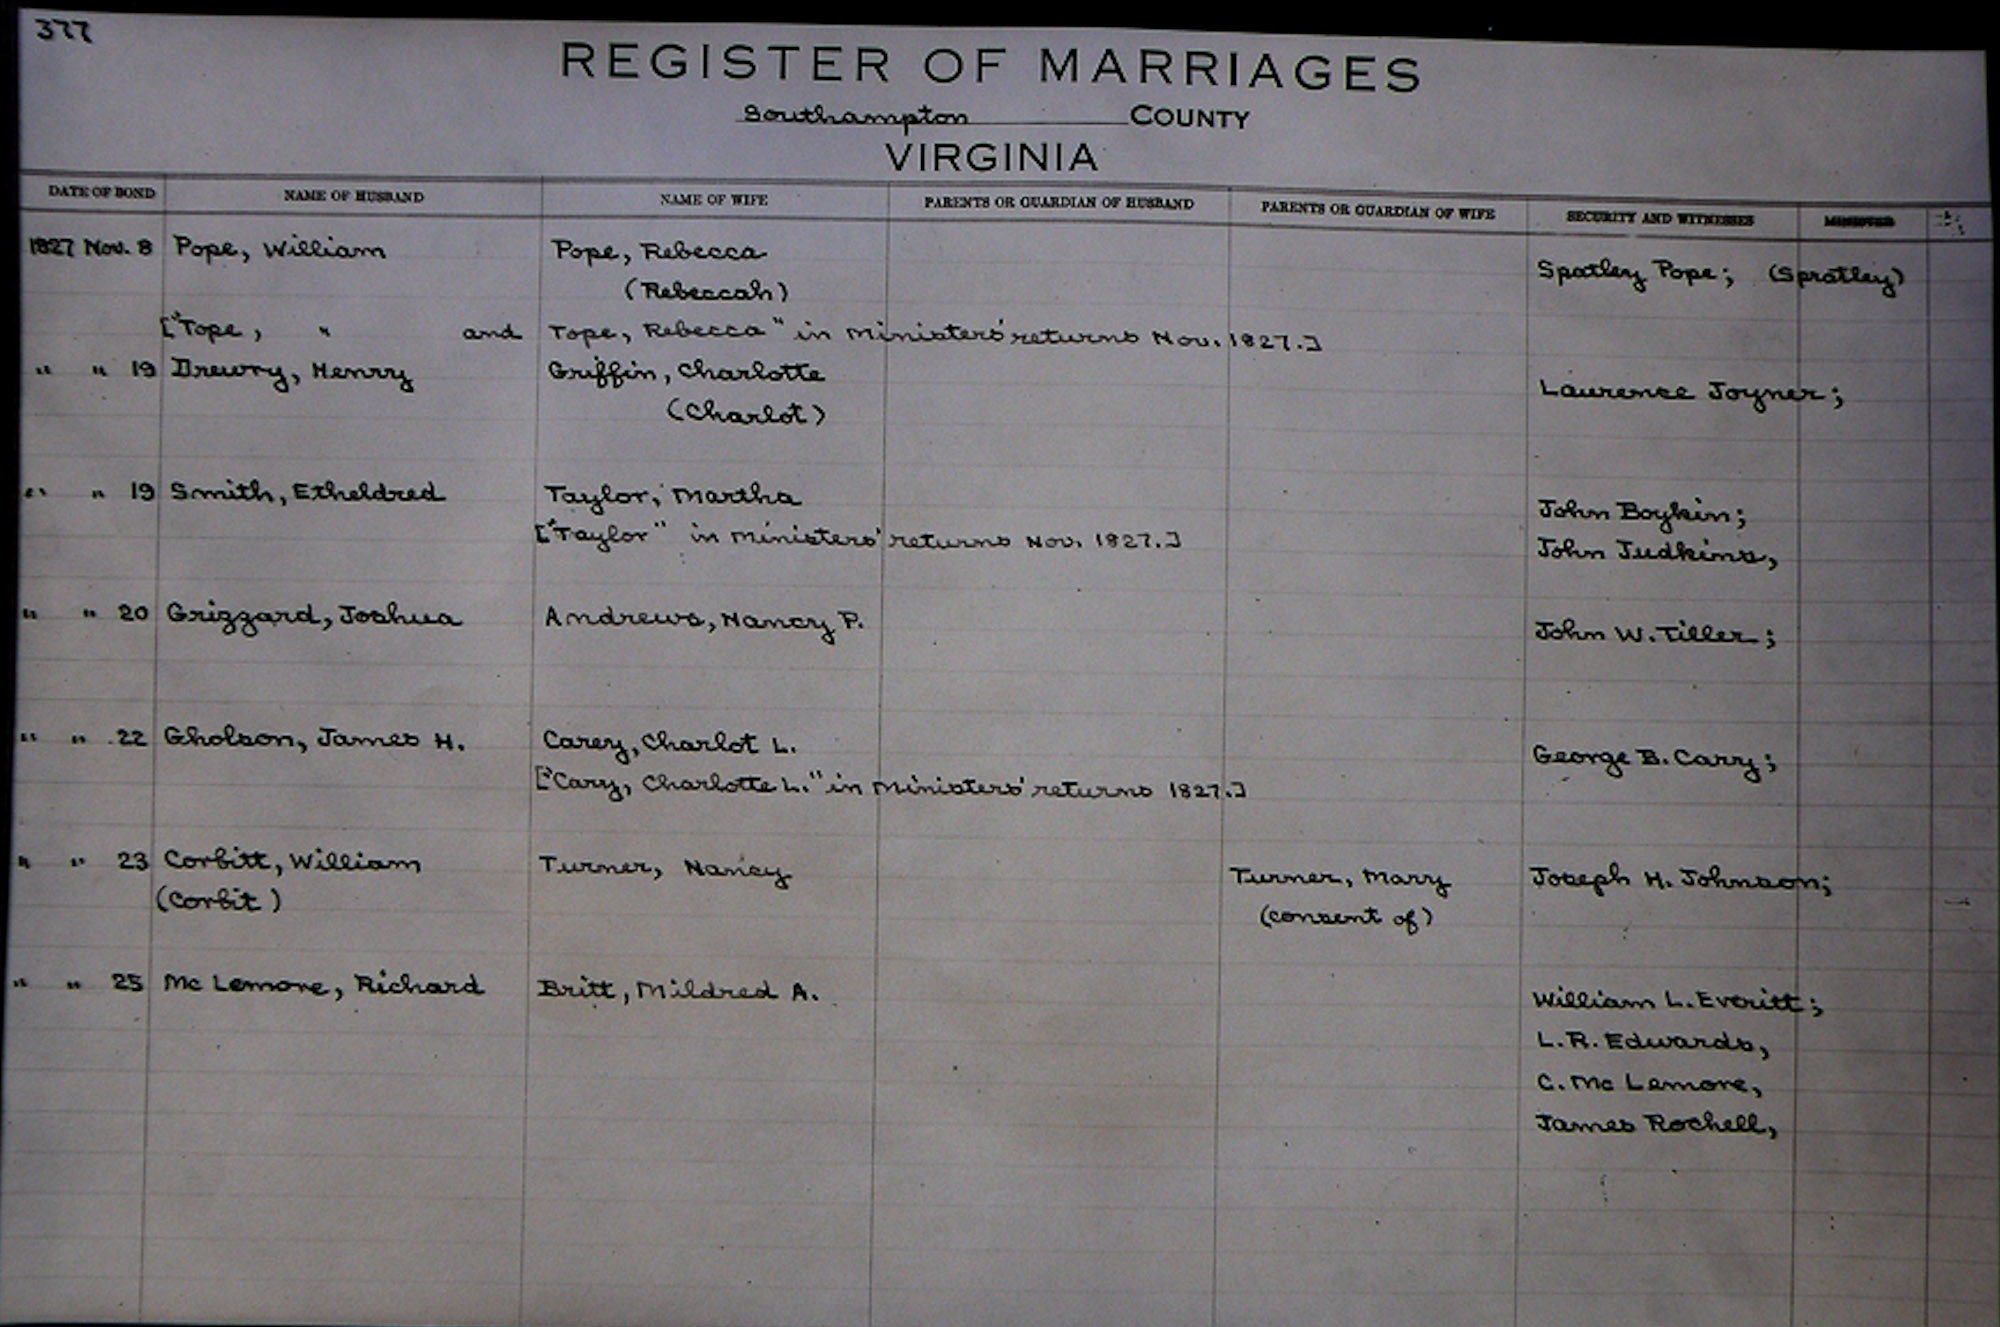 377
REGISTER OF MARRIAGES
Southampton COUNTY
VIRGINIA
DATE OF BOND NAME OF HUSBAND NAME OF WIFE PARENTS OR GUARDIAN OF HUSBAND PARENTS OR GUARDIAN OF WIFE SECURITY AND WITNESSES MINISTER
1827 Nov. 8 Pope, William Pope, Rebecca Spatley Pope; (Spratley)
(Rebeccah)
["Tope, " and Tope, Rebecca" in Ministers' returns Nov. 1827.]
" " 19 Drewry, Henry Griffin, Charlotte Laurence Joyner;
(Charlot)
" " 19 Smith, Etheldred Taylor, Martha John Boykin;
["Taylor" in Ministers' returns Nov. 1827.] John Judkins,
" " 20 Grizzard, Joshua Andrews, Nancy P. John W. Tiller;
" " 22 Gholson, James H. Carey, Charlot L. George B. Cary;
["Cary, Charlotte L." in Ministers' returns 1827.]
" " 23 Corbitt, William Turner, Nancy Turner, Mary Joseph H. Johnson;
(Corbit) (consent of)
" " 25 Mc Lemore, Richard Britt, Mildred A. William L. Everitt;
L. R. Edwards,
C. Mc Lemore,
James Rochell,